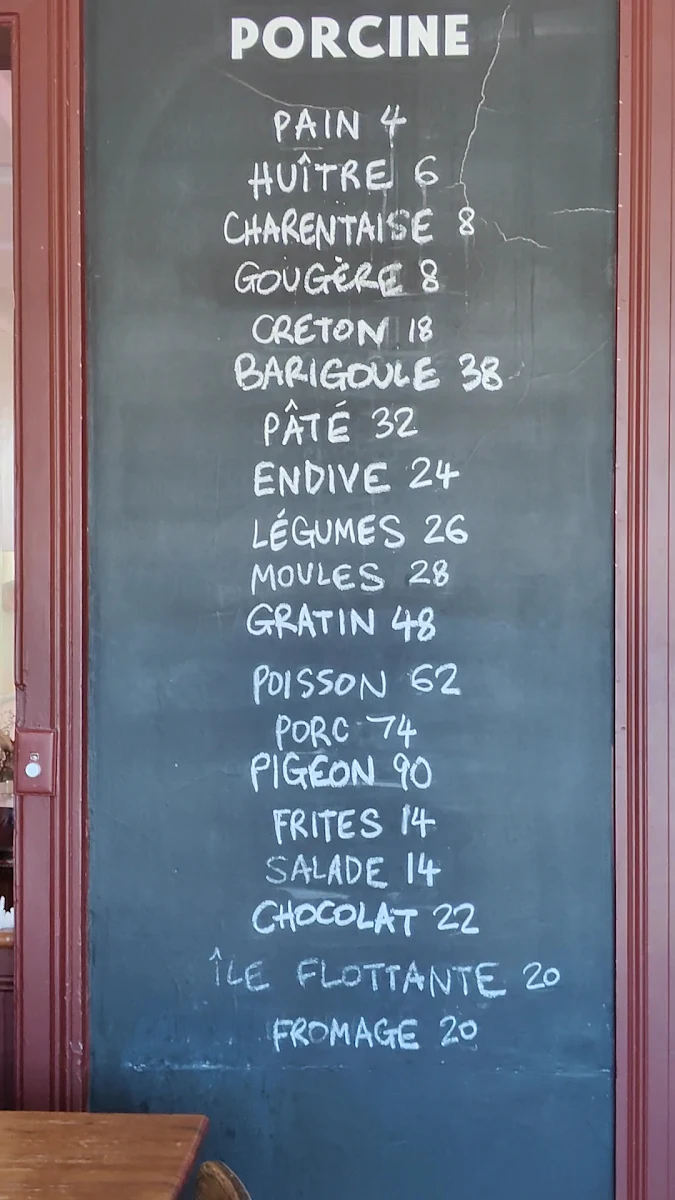 PORCINE
PAIN 4
HUÎTRE 6
CHARENTAISE 8
GOUGÈRE 8
CRETON 18
BARIGOULE 38
PÂTÉ 32
ENDIVE 24
LÉGUMES 26
MOULES 28
GRATIN 48
POISSON 62
PORC 74
PIGEON 90
FRITES 14
SALADE 14
CHOCOLAT 22
ÎLE FLOTTANTE 20
FROMAGE 20